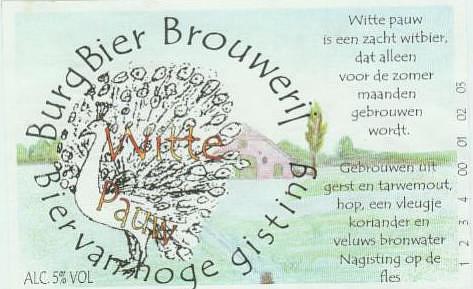 BurgBier Brouwerij
Witte
Pauw
Bier van hoge gisting
ALC. 5% VOL
Witte pauw
is een zacht witbier,
dat alleen
voor de zomer
maanden
gebrouwen
wordt.
Gebrouwen uit
gerst en tarwemout,
hop, een vleugje
koriander en
veluws bronwater
Nagisting op de
fles
1 2 3 4 00 01 02 03